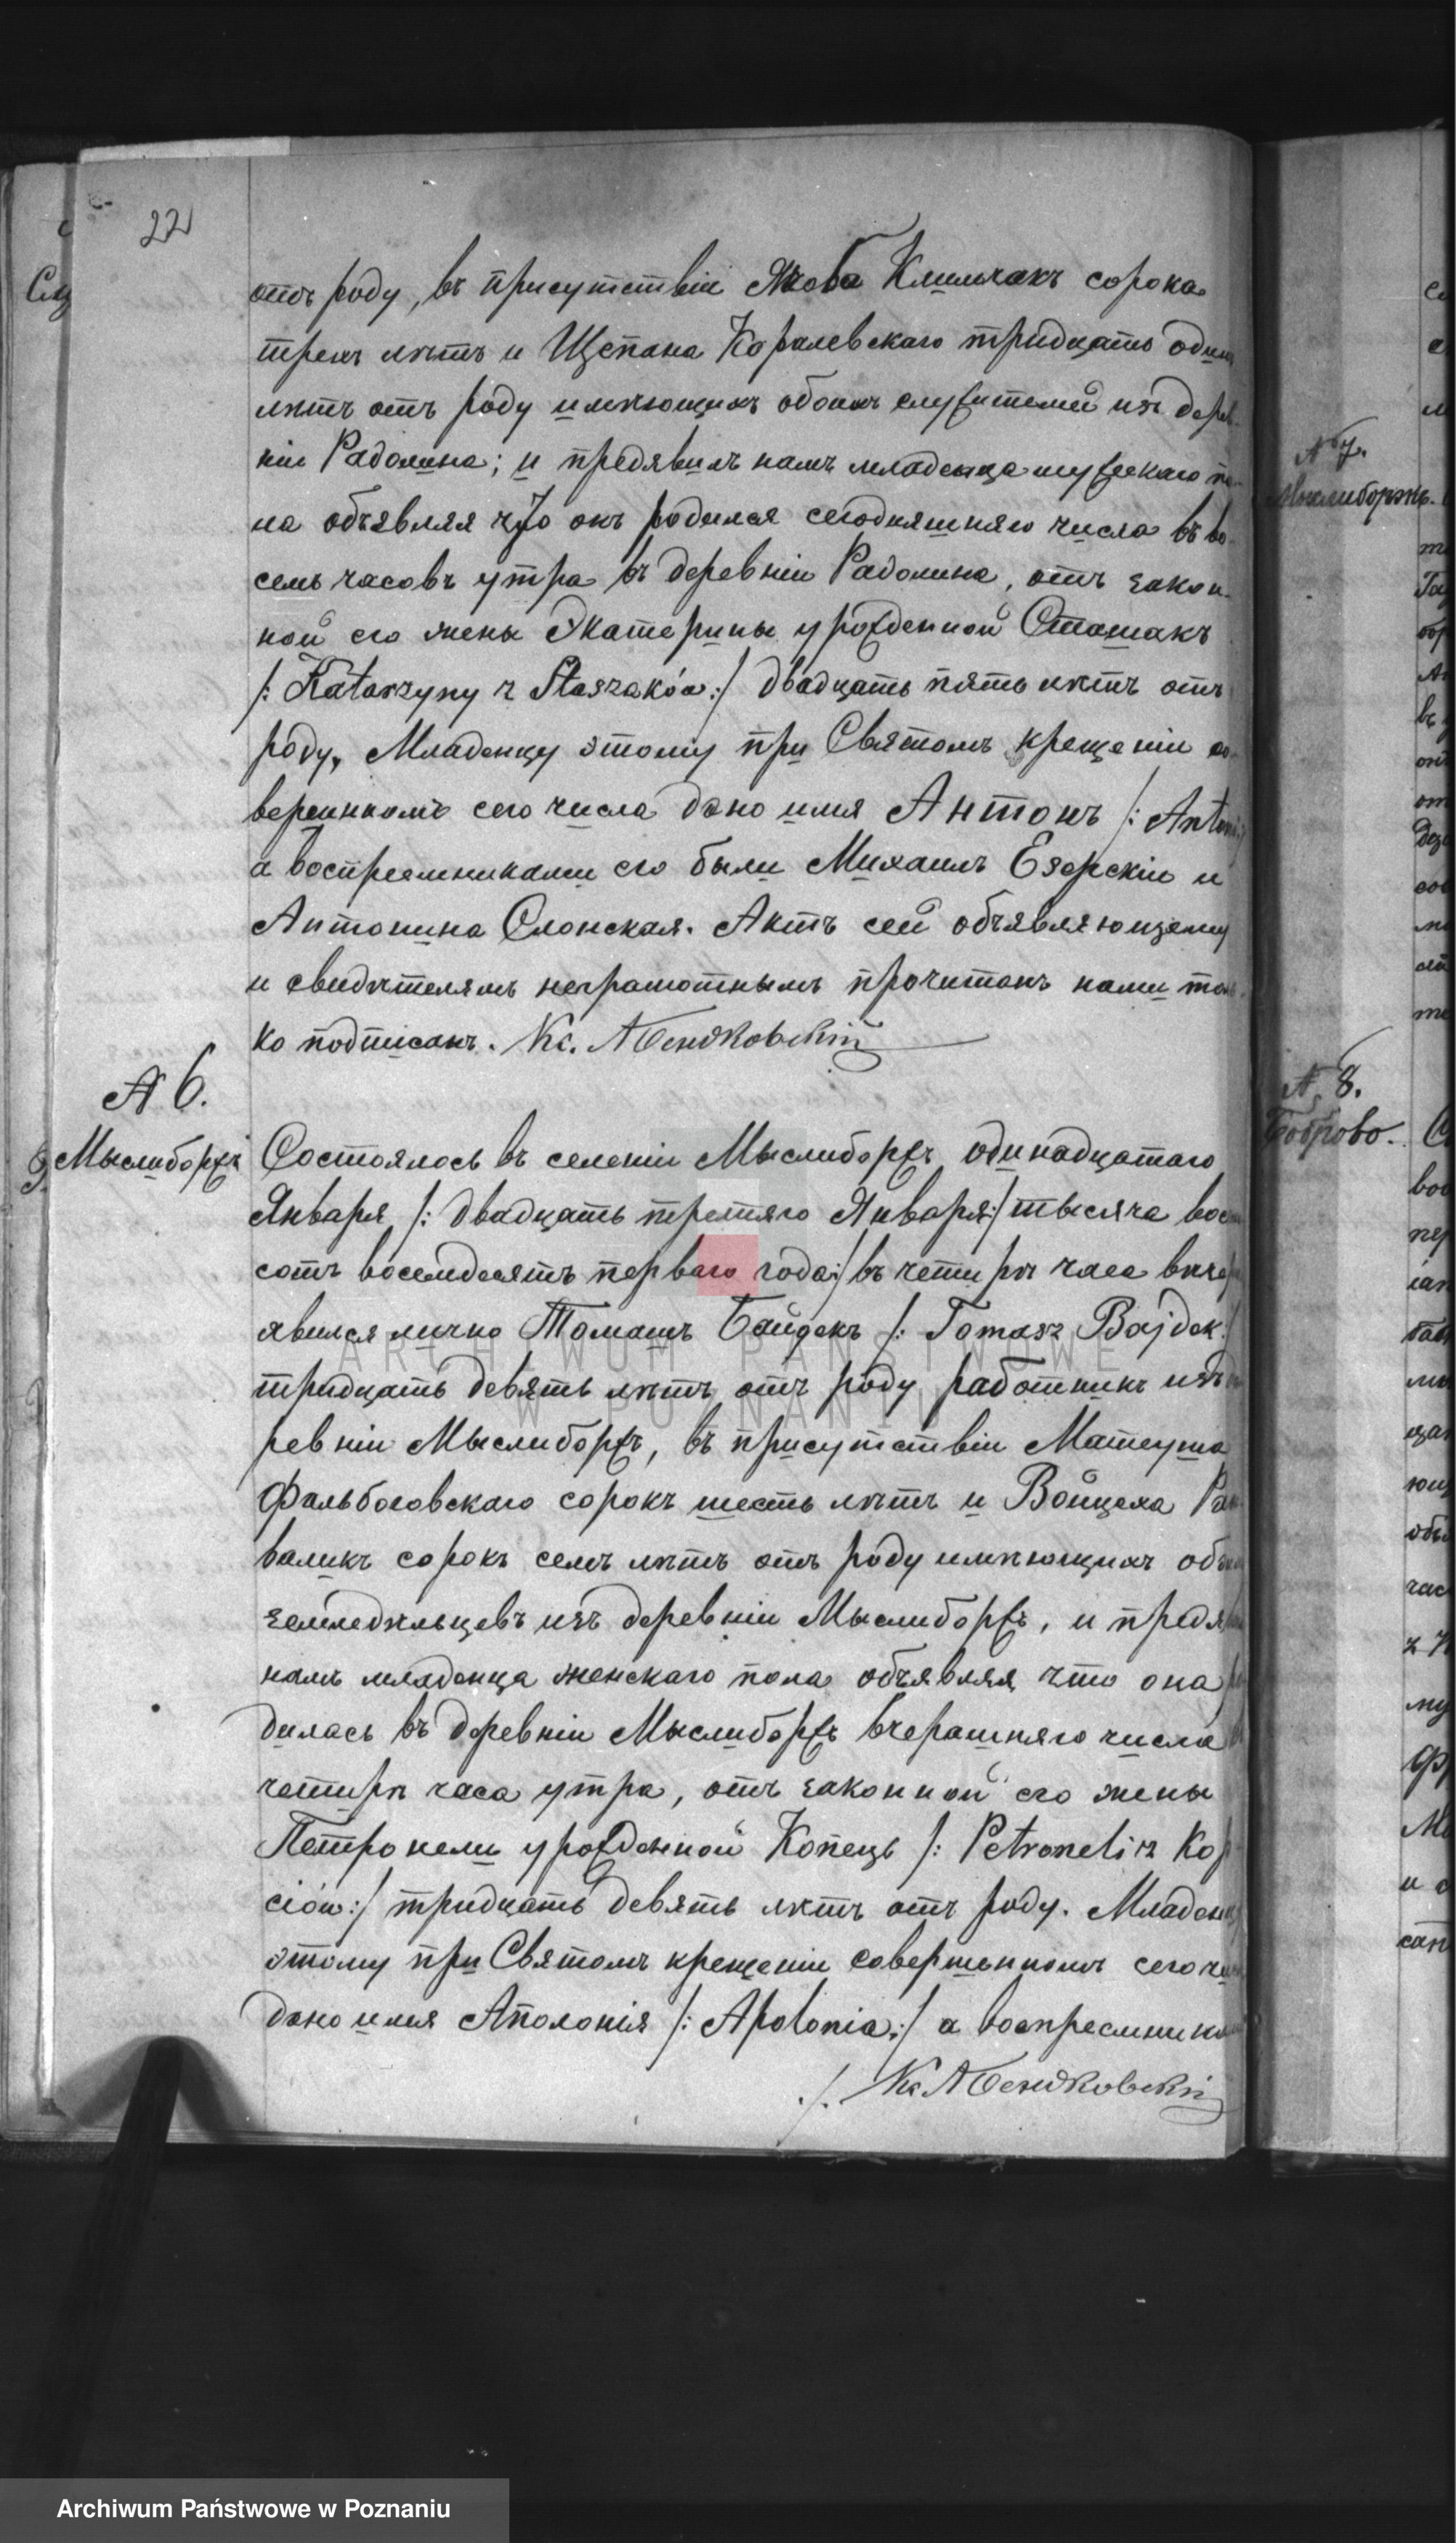 22
отъ роду, въ присутствіи Якоба Клильчакъ сорока
трехъ лѣтъ и Щепана Коралевскаго тридцать один
лѣтъ отъ роду имѣющихъ обоихъ служителей изъ дерев-
ніи Радолина; и предявилъ намъ младенца мужескаго по-
ла объявляя что онъ родился сегодняшняго числа въ во-
семь часовъ утра въ деревніи Радолина, отъ закон-
ной его жены Экатерины урожденной Сташакъ
/: Katarzyny z Staszaków :/ двадцать пять лѣтъ отъ
роду, Младенцу этому при Святомъ крещеніи со-
вершнномъ сего числа дано имя Антонъ /: Antoni
а воспреемниками его были Михаилъ Езерскіи и
Антонина Слонская. Актъ сей объявляющему
и свидѣтелямъ неграмотнымъ прочитанъ нами толь-
ко подписанъ. Кс. А Бендковскій
N 6.
Мыслиборжъ
Состоялось въ селеніи Мыслиборжъ одинадцатаго
Января /: двадцать третяго Января :/ тысяча вос
сотъ восемдесятъ перваго года :/ въ четыри часа вечер
явился лично Томашъ Байдекъ /: Tomasz Bajdek :/
тридцать девять лѣтъ отъ роду работникъ изъ де
ревніи Мыслиборжъ, въ присутствіи Матеуша
Фальбоговскаго сорокъ шесть лѣтъ и Войцеха Ра
валикъ сорокъ семъ лѣтъ отъ роду имѣющихъ обо
земледѣльцевъ изъ деревніи Мыслиборжъ, и предя
намъ младенца женскаго пола объявляя что она ро
дилась въ деревніи Мыслиборжъ вчерашняго числа
четыри часа утра, отъ законной его жены
Петронели урожденной Копець /: Petroneli z Kop
ciów :/ тридцать девять лѣтъ отъ роду. Младенц
этому при Святомъ крещеніи совершенномъ сего чи
дано имя Аполонія /: Apolonia :/ а воспреемник
./. Кс А Бендковскій
N 7.
Мыслиборжъ.
N 8.
Боброво.
ARCHIWUM PAŃSTWOWE
W POZNANIU
Archiwum Państwowe w Poznaniu